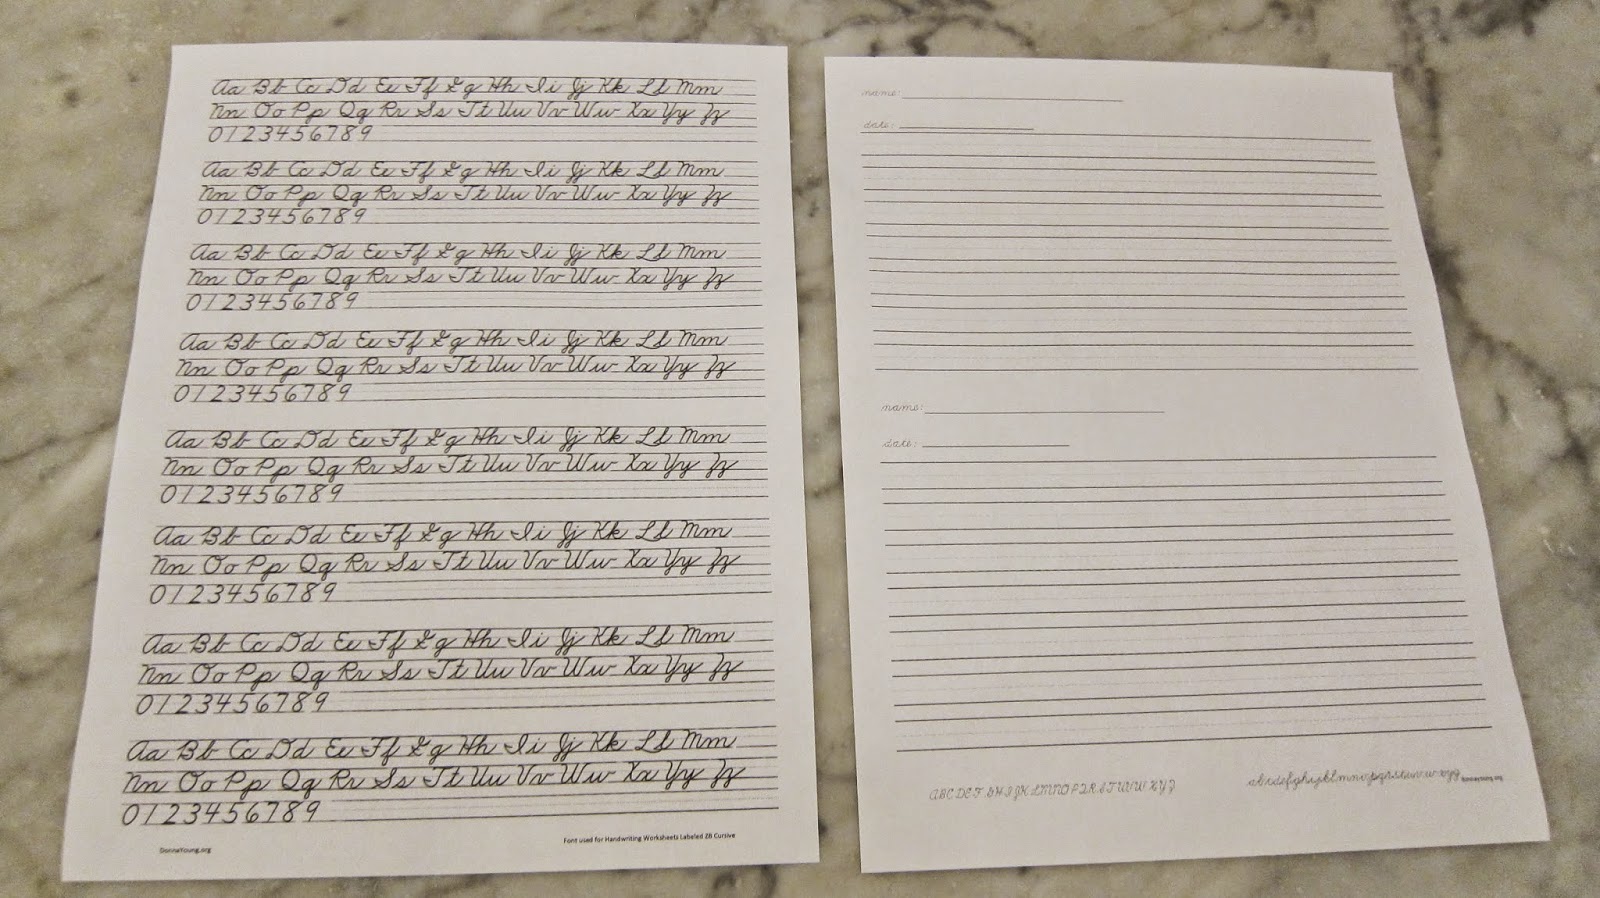 Aa Bb Cc Dd Ee Ff Gg Hh Ii Jj Kk Ll Mm
Nn Oo Pp Qq Rr Ss Tt Uu Vv Ww Xx Yy Zz
0123456789
Aa Bb Cc Dd Ee Ff Gg Hh Ii Jj Kk Ll Mm
Nn Oo Pp Qq Rr Ss Tt Uu Vv Ww Xx Yy Zz
0123456789
Aa Bb Cc Dd Ee Ff Gg Hh Ii Jj Kk Ll Mm
Nn Oo Pp Qq Rr Ss Tt Uu Vv Ww Xx Yy Zz
0123456789
Aa Bb Cc Dd Ee Ff Gg Hh Ii Jj Kk Ll Mm
Nn Oo Pp Qq Rr Ss Tt Uu Vv Ww Xx Yy Zz
0123456789
Aa Bb Cc Dd Ee Ff Gg Hh Ii Jj Kk Ll Mm
Nn Oo Pp Qq Rr Ss Tt Uu Vv Ww Xx Yy Zz
0123456789
Aa Bb Cc Dd Ee Ff Gg Hh Ii Jj Kk Ll Mm
Nn Oo Pp Qq Rr Ss Tt Uu Vv Ww Xx Yy Zz
0123456789
Aa Bb Cc Dd Ee Ff Gg Hh Ii Jj Kk Ll Mm
Nn Oo Pp Qq Rr Ss Tt Uu Vv Ww Xx Yy Zz
0123456789
Aa Bb Cc Dd Ee Ff Gg Hh Ii Jj Kk Ll Mm
Nn Oo Pp Qq Rr Ss Tt Uu Vv Ww Xx Yy Zz
0123456789
Font used for Handwriting Worksheets Labeled ZB Cursive
DonnaYoung.org
name:
date:
name:
date:
ABCDEFGHIJKLMNOPQRSTUVWXYZ
abcdefghijklmnopqrstuvwxyz
donnayoung.org